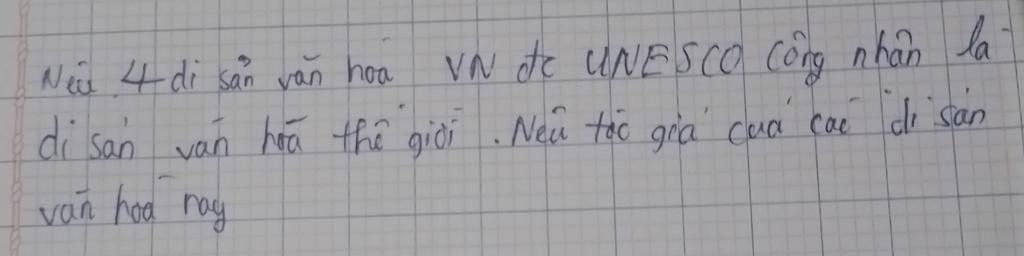 Nêu 4 di sản văn hoá VN đc UNESCO công nhận là
di sản văn hoá thế giới. Nêu tác giả của các di sản
văn hoá này